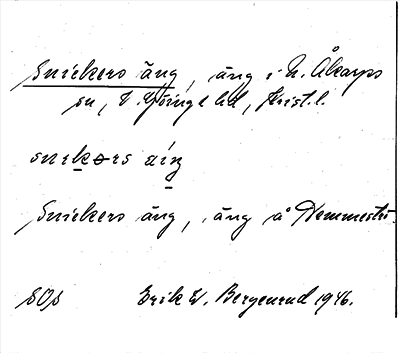 Snickers äng, äng i N. Åkarps
sn, V. Göinge hd, Krist. l.
snekərs äŋ
Snickers äng, äng å Hemmestr.
SOS Erik W. Bergenrud 1946.